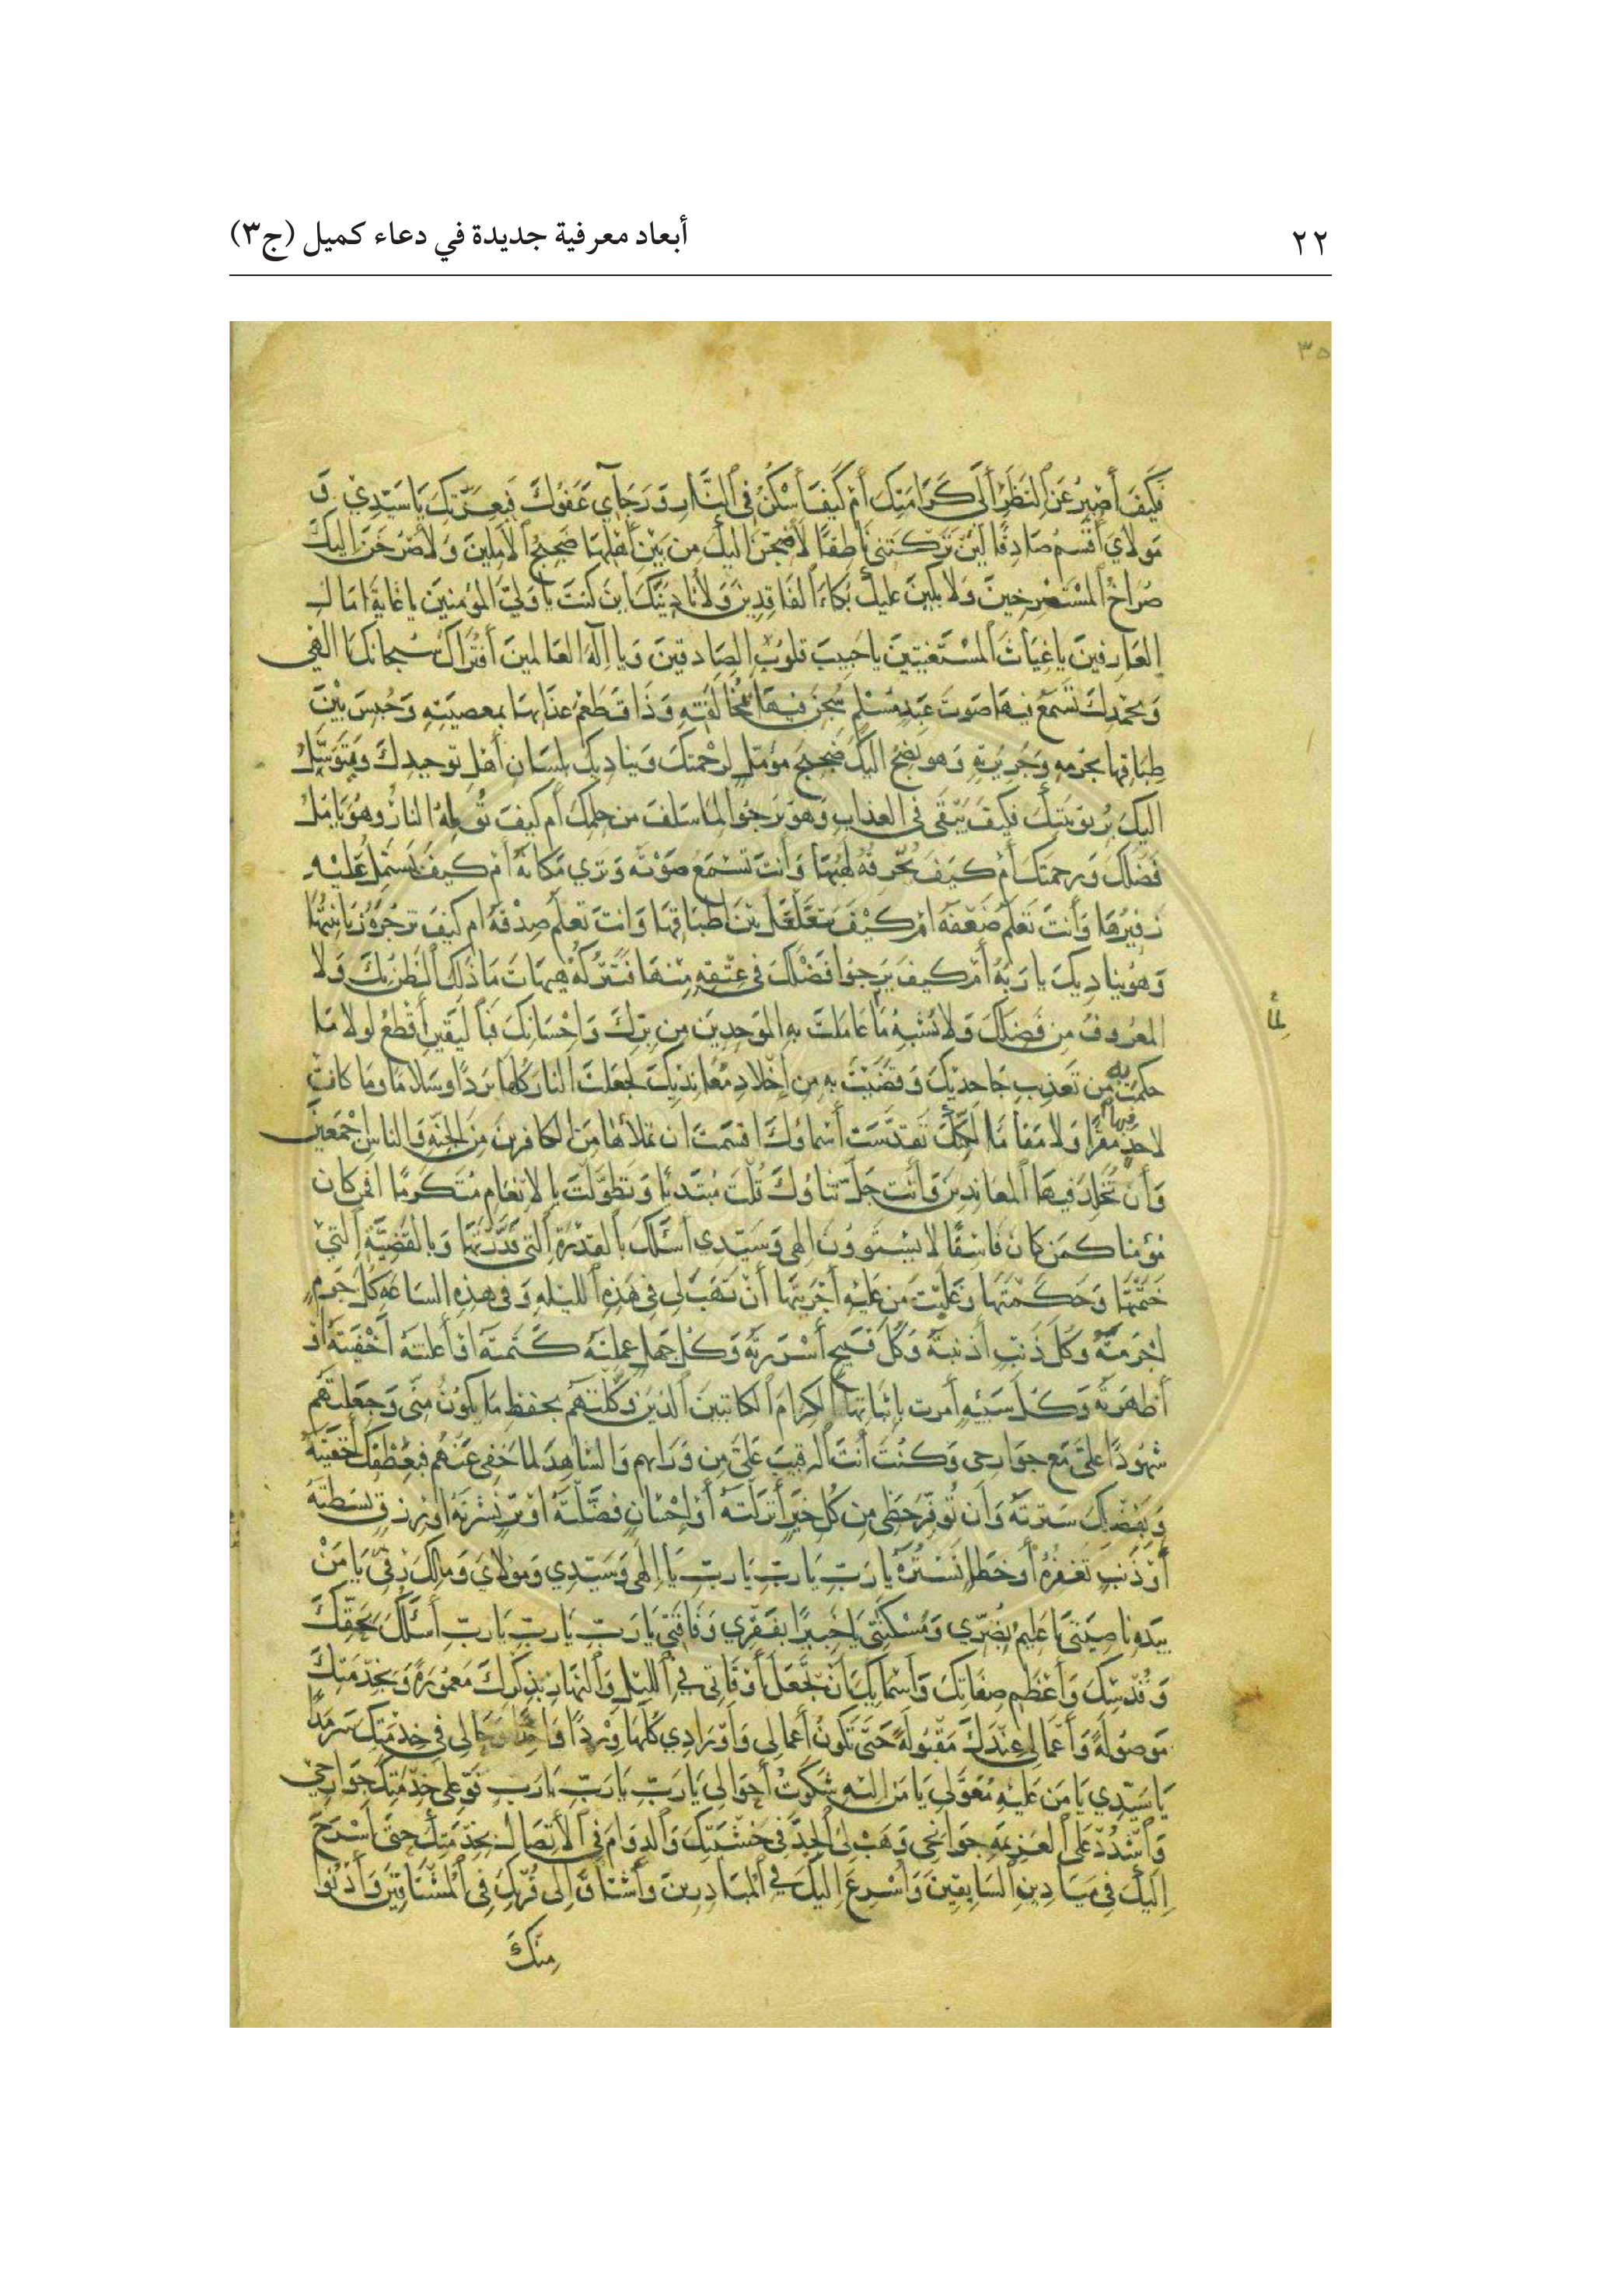 ٢٢
أبعاد معرفية جديدة في دعاء كميل (ج٣)
٣٥
فَكَيْفَ أَصْبِرُ عَنِ النَّظَرِ إِلَى كَرَامَتِكَ أَمْ كَيْفَ أَسْكُنُ فِى النَّارِ وَرَجَآي عَفْوُكَ فَبِعِزَّتِكَ يَا سَيِّدِي وَ
مَوْلَايَ أُقْسِمُ صَادِقًا لَئِن تَرَكْتَنِى نَاطِقًا لَأَضِجَّنَّ اليكَ مِن بَيْنِ أَهْلِهَا ضَجِيجَ الآمِلِينَ وَلَأَصْرُخَنَّ اليكَ
صُرَاخَ المُسْتَصْرِخِينَ وَلَأبْكِيَنَّ عَلَيْكَ بُكَاءَ الفَاقِدِينَ وَلَأُنَادِيَنَّكَ أينَ كُنتَ يَا وَلِيَّ المُؤْمِنِينَ يَا غَايَةَ امَالِ
العَارِفِينَ يَا غِيَاثَ المُسْتَغِيثِينَ يَا حَبِيبَ قُلُوبِ الصَّادِقِينَ وَيَا إِلٰهَ العَالَمِينَ أَفَتُرَاكَ سُبحَانَكَ يَا الٰهِى
وَبِحَمْدِكَ تَسْمَعُ فِيهَا صَوْتَ عَبْدٍ مُسْلِمٍ سُجِنَ فِيهَا بِمُخَالَفَتِهِ وَذَاقَ طَعْمَ عَذَابِهَا بِمَعْصِيَتِهِ وَحُبِسَ بَيْنَ
طِبَاقِهَا بِجُرْمِهِ وَجَرِيرَتِهِ وَهُوَ يَضِجُّ اليكَ ضَجِيجَ مُؤَمِّلٍ لِرَحْمَتِكَ وَيُنَادِيكَ بِلِسَانِ أَهْلِ تَوْحِيدِكَ وَيَتَوَسَّلُ
اليكَ بِرُبُوبِيَّتِكَ فَكَيْفَ يَبْقَى فِى العَذَابِ وَهُوَ يَرْجُوا لِمَا سَلَفَ مِن حِلْمِكَ أَم كَيْفَ تُؤْلِمُهُ النَّارُ وَهُوَ يَأمُلُ
فَضْلَكَ وَرَحْمَتَكَ أَمْ كَيْفَ تُحْرِقُهُ لَهِبُهَا وَأَنتَ تَسْمَعُ صَوْتَهُ وَتَرَى مَكَانَهُ أَمْ كَيْفَ يَشْتَمِلُ عَلَيْهِ
زَفِيرُهَا وَأَنتَ تَعْلَمُ ضَعْفَهُ أَمْ كَيْفَ يَتَغَلْغَلُ بَيْنَ طِبَاقِهَا وَأَنتَ تَعْلَمُ صِدْقَهُ أَم كَيْفَ تَزْجُرُهُ زَبَانِيَتُهَا
وَهُوَ يُنَادِيكَ يَا رَبَّهُ أَمْ كَيْفَ يَرْجُوا فَضْلَكَ فِى عِتْقِهِ مِنْهَا فَتَتْرُكُهُ هَيهَاتَ مَا ذٰلِكَ الظَّنُّ بِكَ وَلَا
المَعْرُوفُ مِن فَضْلِكَ وَلَا مُشْبِهٌ مَا عَامَلْتَ بِهِ المُوَحِّدِينَ مِن بِرِّكَ وَإِحْسَانِكَ فَبِاليَقِينِ أَقْطَعُ لَولَا مَا
حَكَمْتَ به مِن تَعْذِيبِ جَاحِدِيكَ وَقَضَيْتَ بِهِ مِن إِخْلَادِ مُعَانِدِيكَ لَجَعَلْتَ النَّارَ كُلَّهَا بَرْدًا وَسَلَامًا وَمَا كَانَت
لِأَحَدٍ فيها مَقَرًّا وَلَا مُقَامًا تَقَدَّسَتْ أَسْمَاؤُكَ اقْسَمْتَ أن تَملَأَهَا مِنَ الكَافِرِينَ مِنَ الجِنَّةِ وَالنَّاسِ أَجْمَعِينَ
وَأَن تُخَلِّدَ فِيهَا المُعَانِدِينَ وَأَنتَ جَلَّ ثَنَاؤُكَ قُلْتَ مُبْتَدِئًا وَتَطَوَّلْتَ بِالاِنْعَامِ مُتَكَرِّمًا افَمَن كَانَ
مُؤْمِنًا كَمَن كَانَ فَاسِقًا لَا يَسْتَوُونَ الٰهِى وَسَيِّدِي اسْئَلُكَ بِالقُدْرَةِ الَّتِى قَدَّرْتَهَا وَبِالقَضِيَّةِ الَّتِي
حَتَمْتَهَا وَحَكَمْتَهَا وَغَلَبْتَ مَن عَلَيْهِ أَجْرَيْتَهَا أَنْ تَهَبَ لِى فِى هٰذِهِ اللَّيلَةِ وَفِى هٰذِهِ السَّاعَةِ كُلَّ جُرمٍ
أَجْرَمْتُهُ وَكُلَّ ذَنبٍ أَذْنَبْتُهُ وَكُلَّ قَبِيحٍ أَسْرَرْتُهُ وَكُلَّ جَهلٍ عَمِلْتُهُ كَتَمْتُهُ أَوْ أَعْلَنْتُهُ أَخْفَيْتُهُ أَوْ
أَظْهَرْتُهُ وَكُلَّ سَيِّئَةٍ أَمَرْتَ بِإِثْبَاتِهَا الكِرَامَ الكَاتِبِينَ الَّذِينَ وَكَّلْتَهُمْ بِحِفْظِ مَا يَكُونُ مِنِّى وَجَعَلْتَهُم
شُهُودًا عَلَىَّ مَعَ جَوَارِحِى وَكُنْتَ أَنتَ الرَّقِيبَ عَلَىَّ مِن وَرَائِهِم وَالشَّاهِدَ لِمَا خَفِىَ عَنْهُم
سَتَرْتَهُ وَأَن تُوَفِّرَ حَظِّى مِن كُلِّ خَيْرٍ أَنزَلْتَهُ أَوْ إِحْسَانٍ فَضَّلْتَهُ أَوْ بِرٍّ نَشَرْتَهُ أَوْ رِزقٍ بَسَطْتَهُ
أَوْ ذَنبٍ تَغْفِرُهُ أَو خَطَإٍ تَسْتُرُهُ يَا رَبِّ يَا رَبِّ يَا رَبِّ يَا إِلٰهِى وَسَيِّدِي وَمَوْلَايَ وَمَالِكَ رِقِّى يَا مَنْ
بِيَدِهِ نَاصِيَتِى يَا عَلِيمًا بِضُرِّي وَمَسْكَنَتِى يَا خَبِيرًا بِفَقْرِي وَفَاقَتِى يَا رَبِّ يَا رَبِّ يَا رَبِّ أَسْئَلُكَ بِحَقِّكَ
وَقُدْسِكَ وَأَعْظَمِ صِفَاتِكَ وَأَسْمَائِكَ أَن تَجْعَلَ أَوْقَاتِى فِي اللَّيْلِ وَالنَّهَارِ بِذِكْرِكَ مَعْمُورَةً وَبِخِدْمَتِكَ
مَوصُولَةً وَأَعْمَالِى عِنْدَكَ مَقْبُولَةً حَتَّى تَكُونَ أَعْمَالِى وَأَوْرَادِي كُلُّهَا وِرْدًا وَاحِدًا وَحَالِى فِى خِدْمَتِكَ سَرْمَدًا
يَا سَيِّدِي يَا مَن عَلَيْهِ مُعَوَّلِى يَا مَن الَيْهِ شَكَوْتُ أَحْوَالِى يَا رَبِّ يَا رَبِّ يَا رَبِّ قَوِّ عَلَى خِدْمَتِكَ جَوَارِحِي
وَاشْدُدْ عَلَى العَزِيمَةِ جَوَانِحِى وَهَبْ لِىَ الجِدَّ فِى خَشْيَتِكَ وَالدَّوَامَ فِى الاتِّصَالِ بِخِدْمَتِكَ حَتَّى أَسْرَحَ
إِلَيْكَ فِى مَيَادِينِ السَّابِقِينَ وَأُسْرِعَ الَيْكَ فِي المُبَادِرِينَ وَأَشْتَاقَ إِلَى قُرْبِكَ فِى المُشْتَاقِينَ وَأَدْنُوَا
مِنْكَ